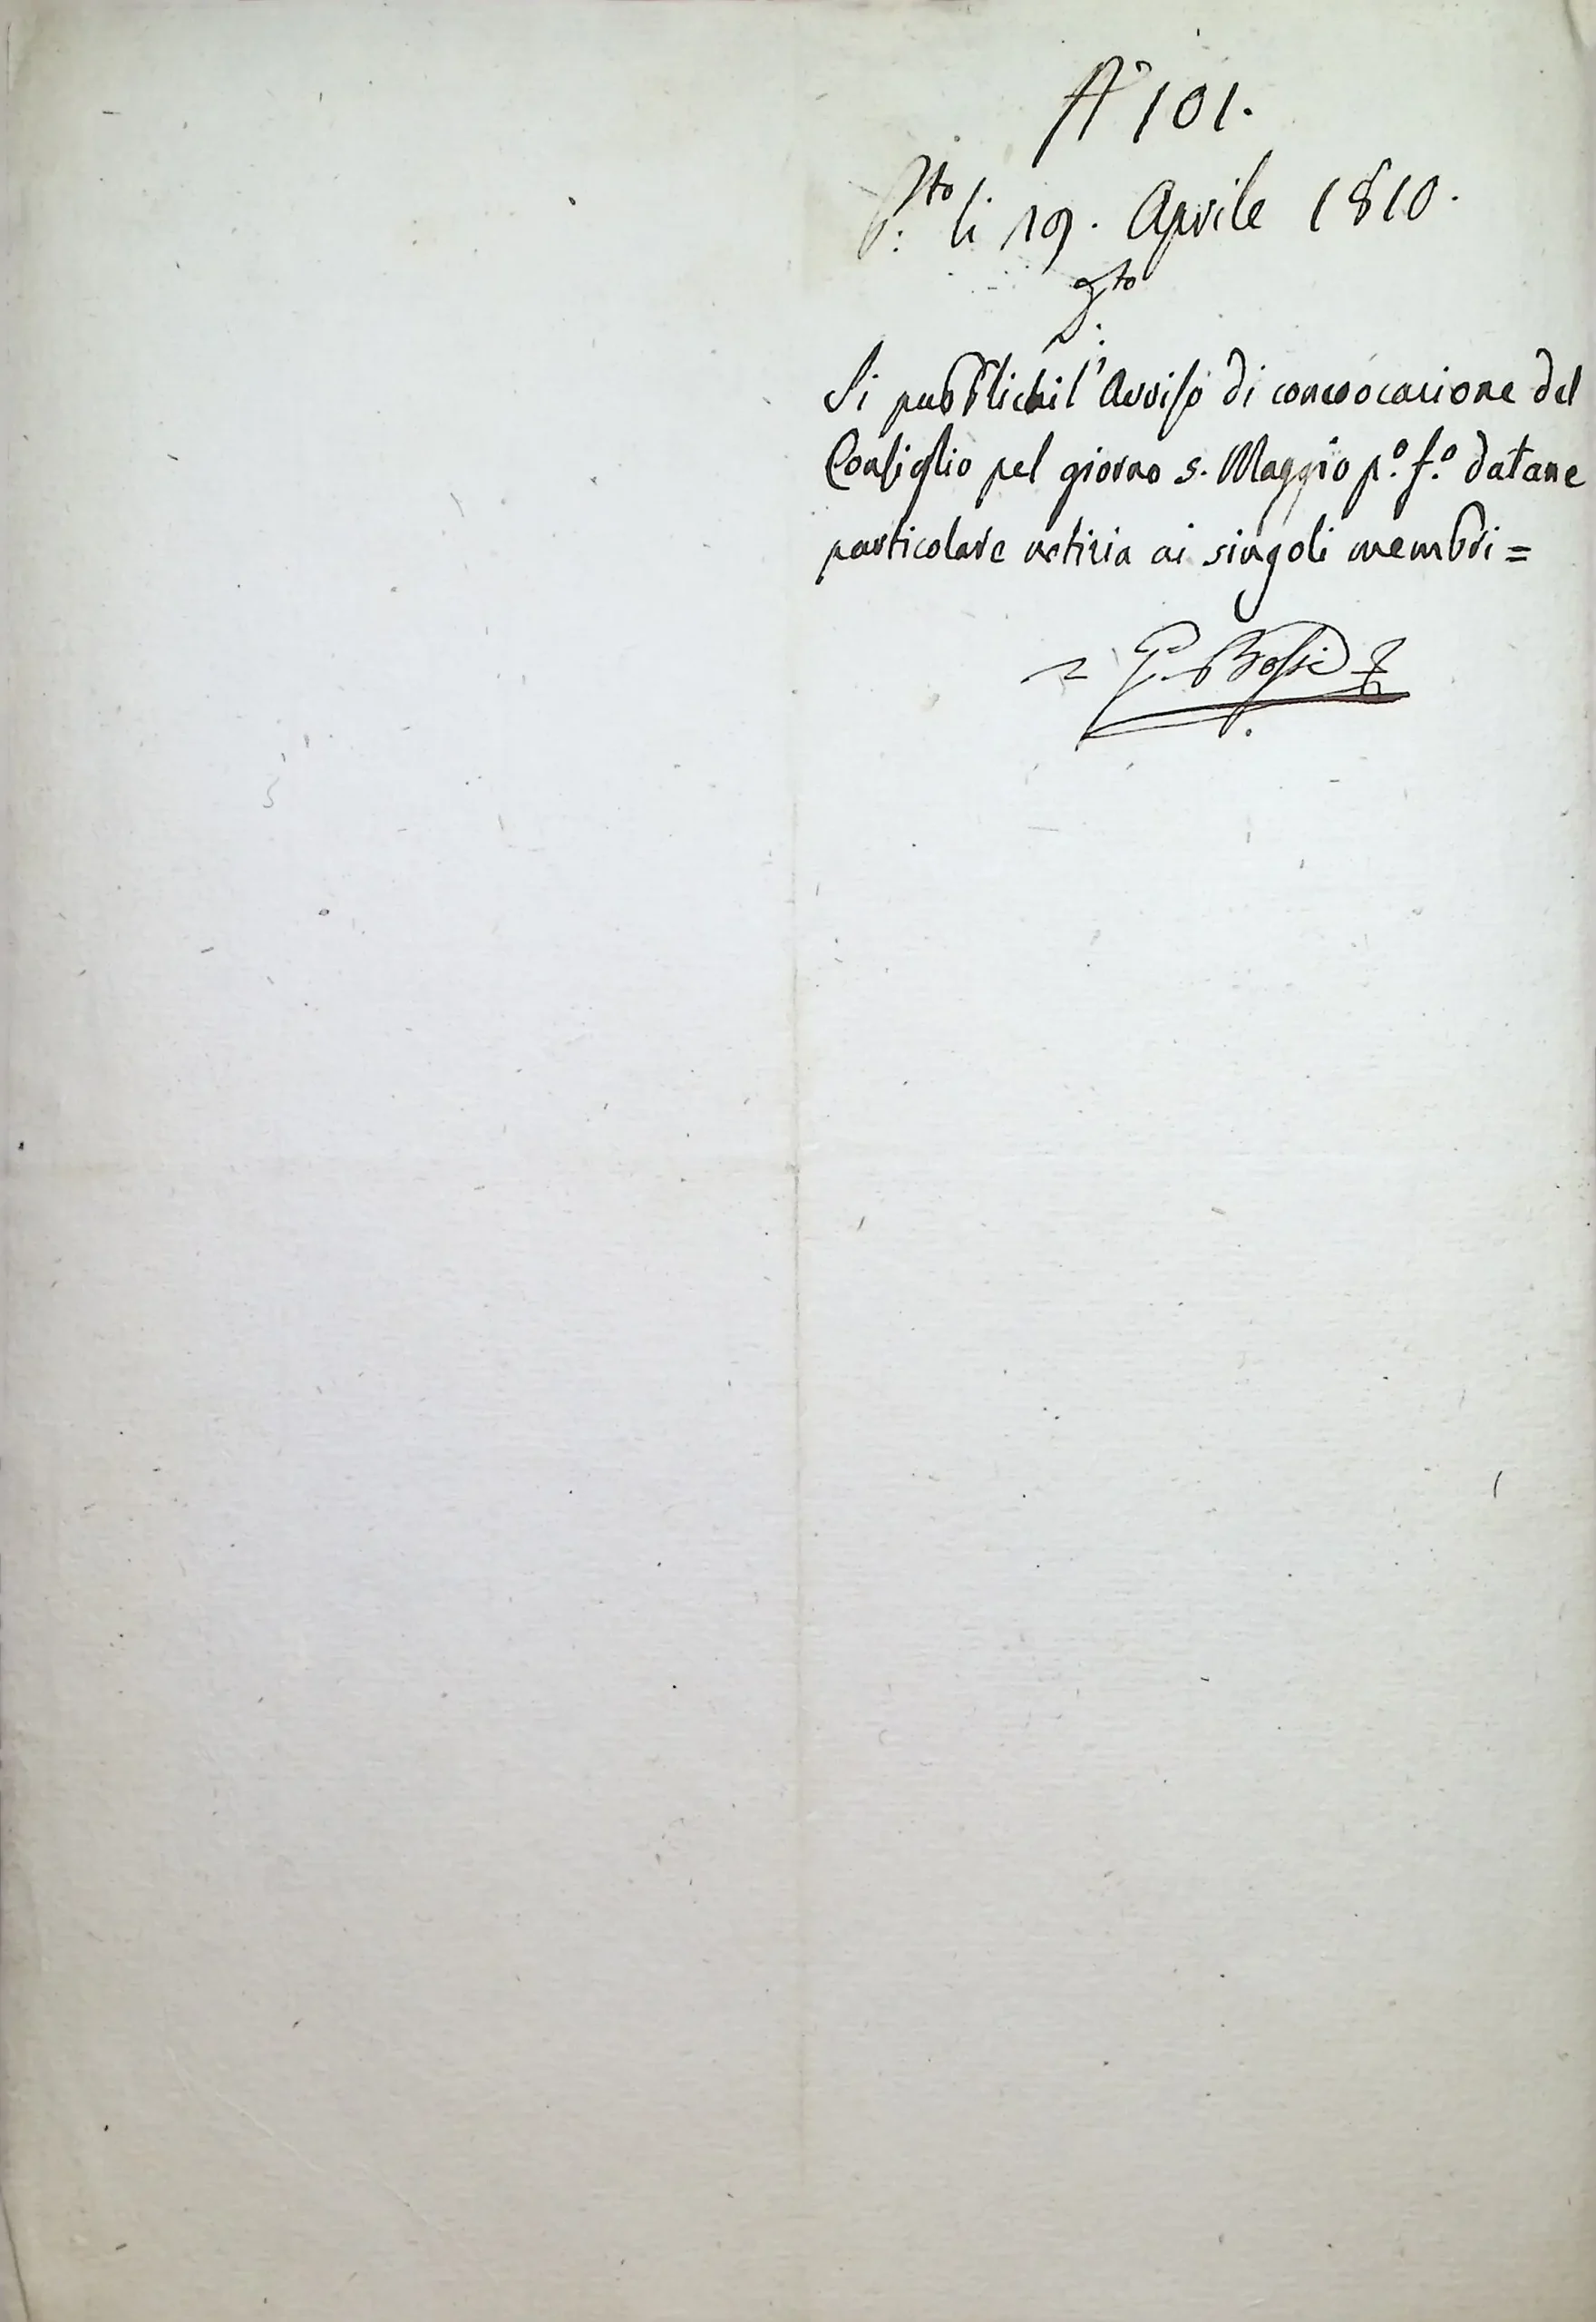 N° 101.
P.to li 19. Aprile 1810.
Si pubblichi l'Avviso di convocazione del
Consiglio pel giorno 5. Maggio p.° f.° datane
particolare notizia ai singoli membri =
= G. Bossi